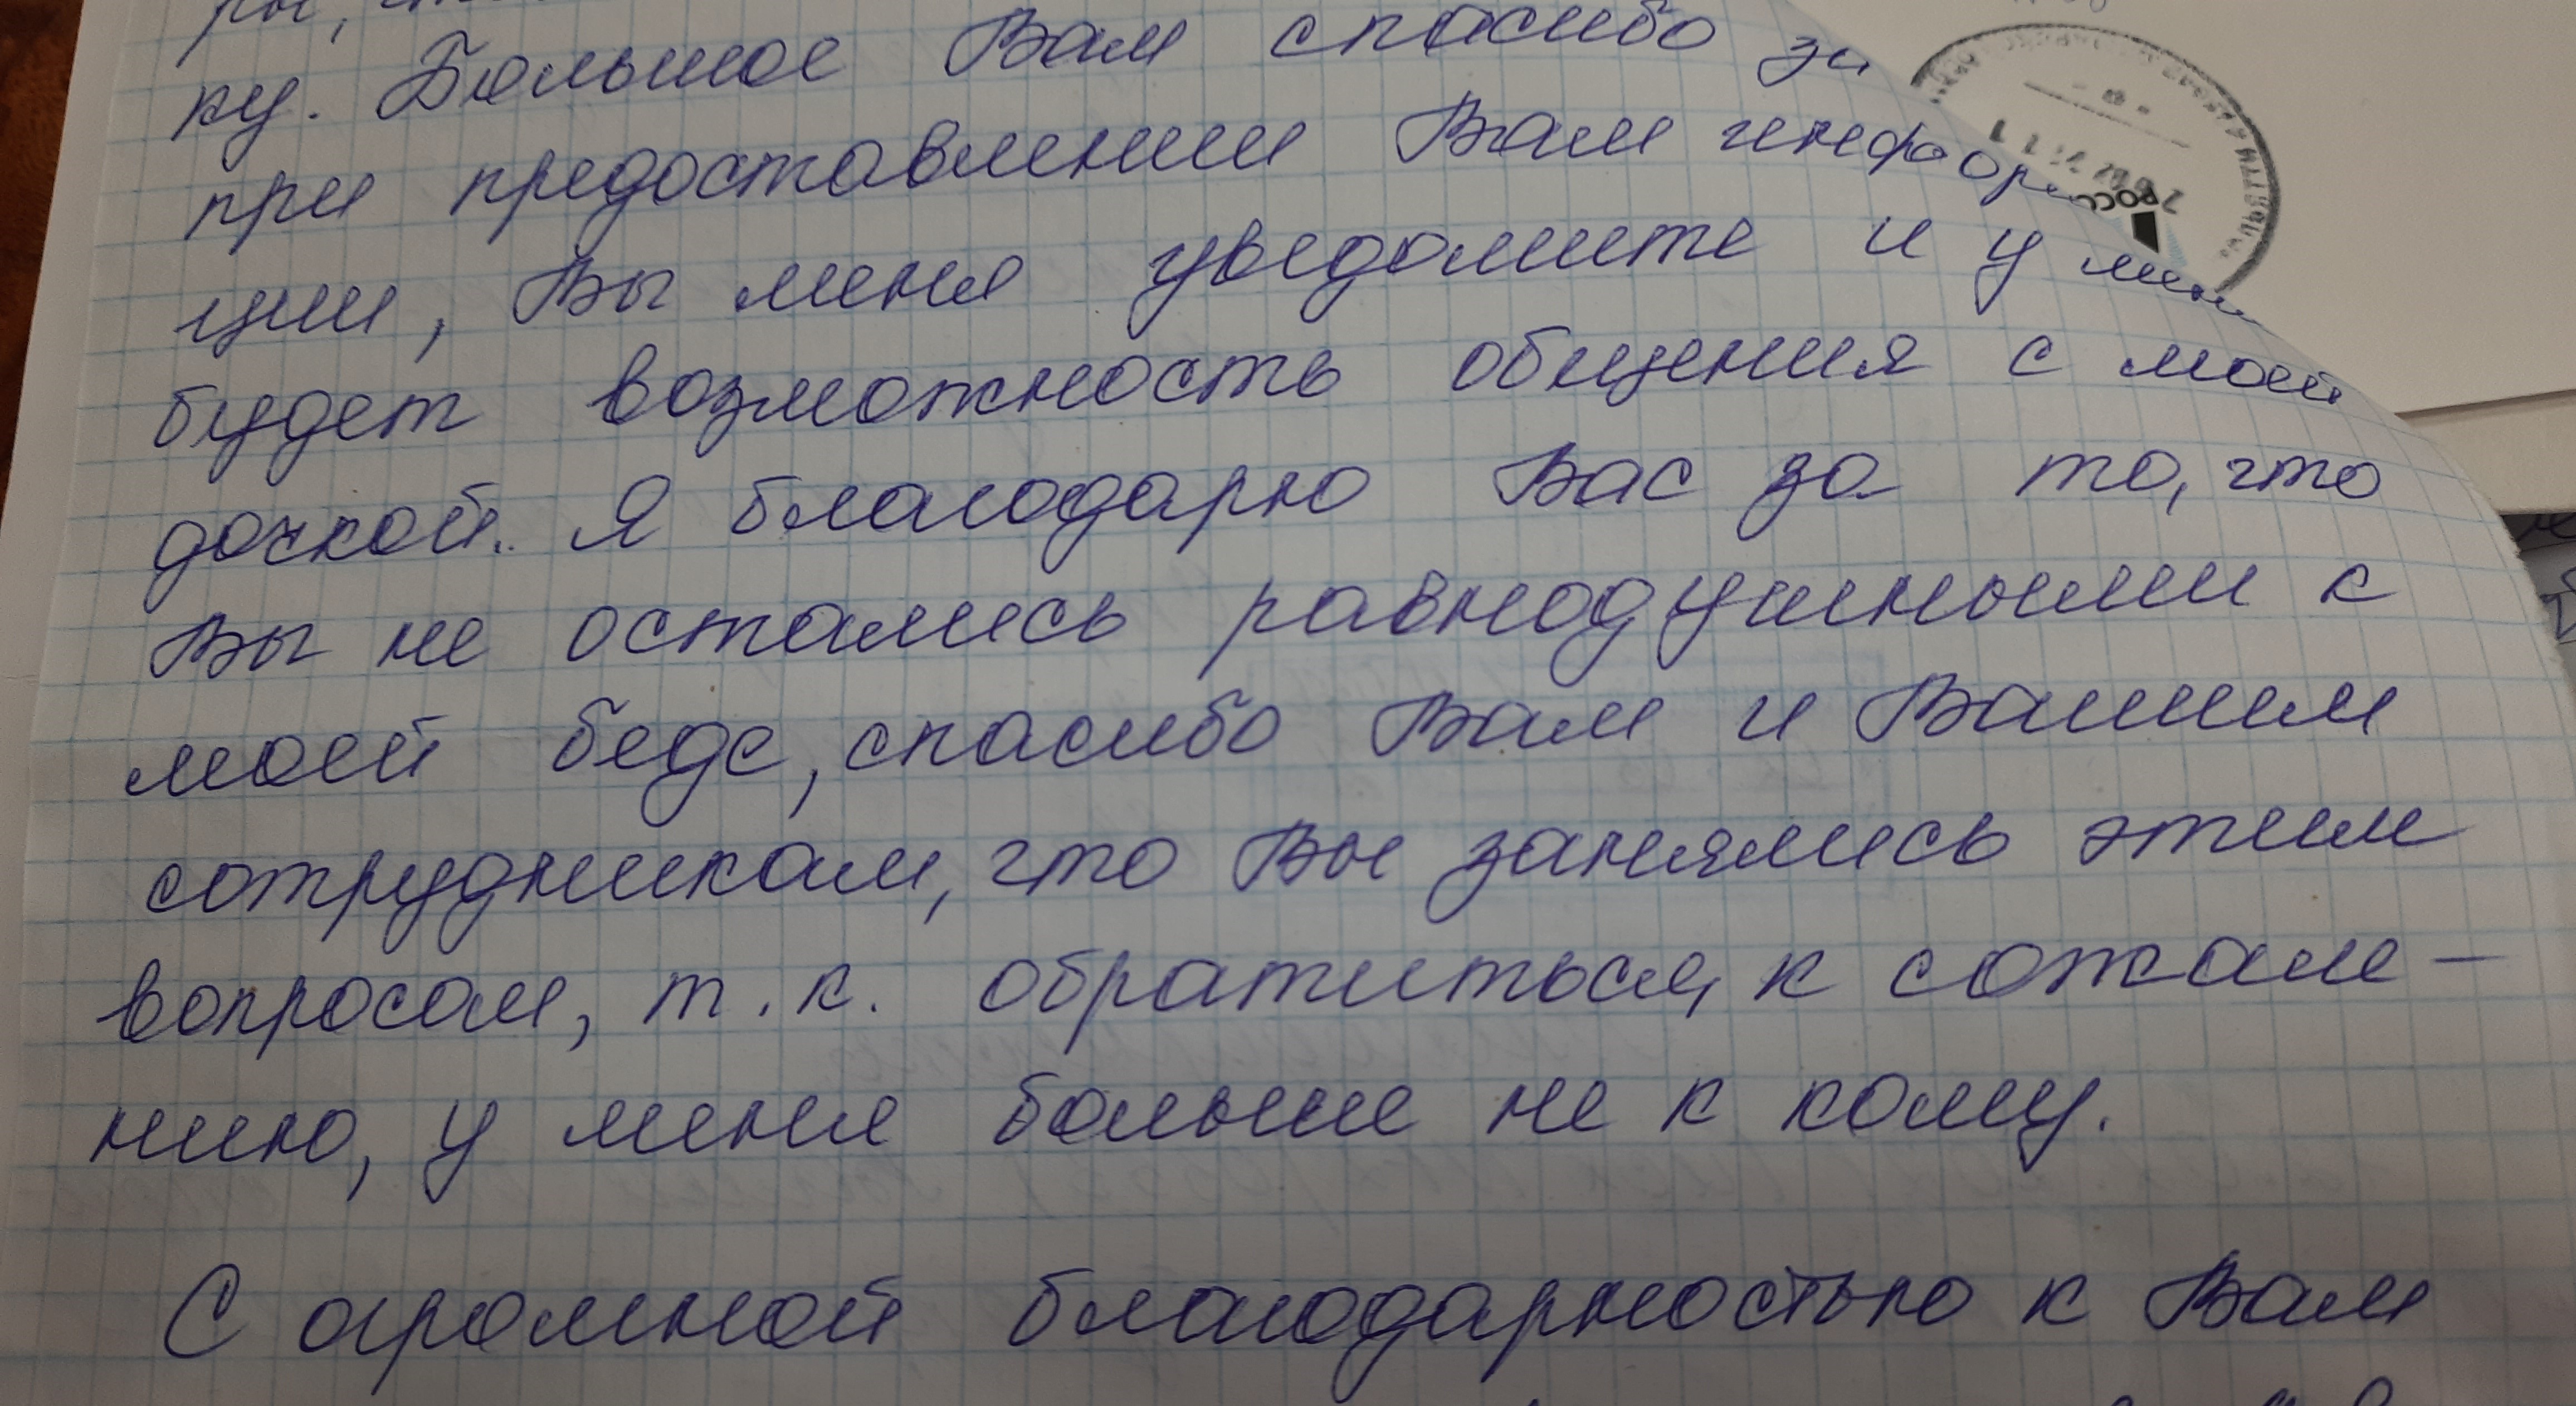 ку. Большое Вам спасибо за
при предоставлении Вам информ
ции, Вы меня уведомите и у мен
будет возможность общения с моей
дочкой. Я благодарю Вас за то, что
Вы не остались равнодушными к
моей беде, спасибо Вам и Вашим
сотрудникам, что Вы занялись этим
вопросом, т.к. обратиться, к сожале-
нию, у меня больше не к кому.
С огромной благодарностью к Вам